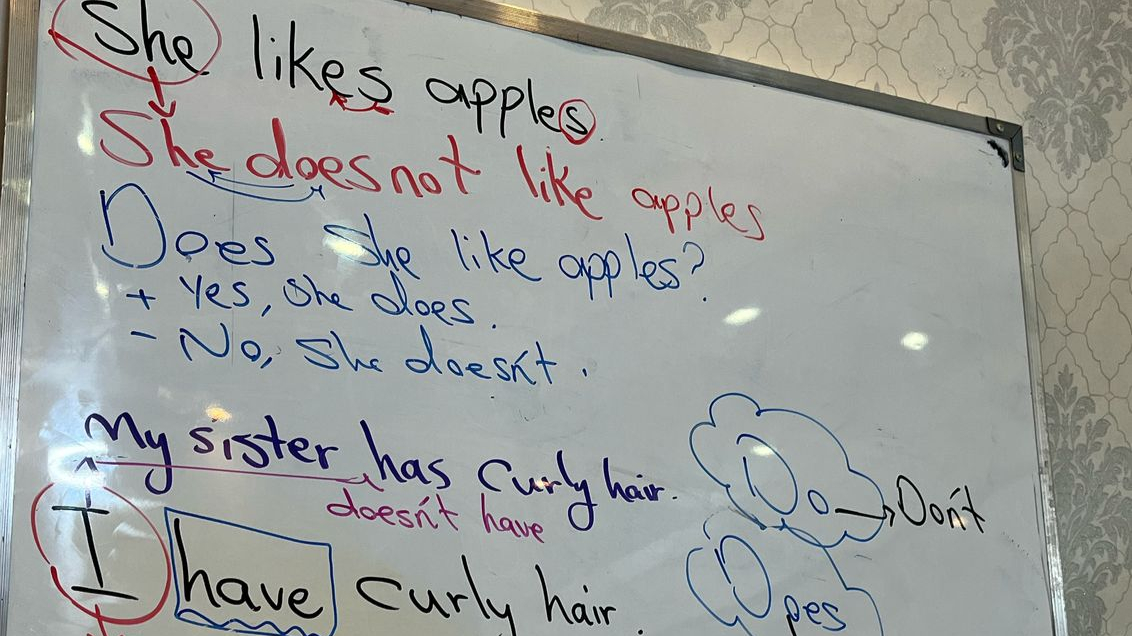 She likes apples.
She does not like apples
Does she like apples?
+ Yes, she does.
- No, she doesn't.
My sister has curly hair.
doesn't have
Do → Don't
I have curly hair.
Does